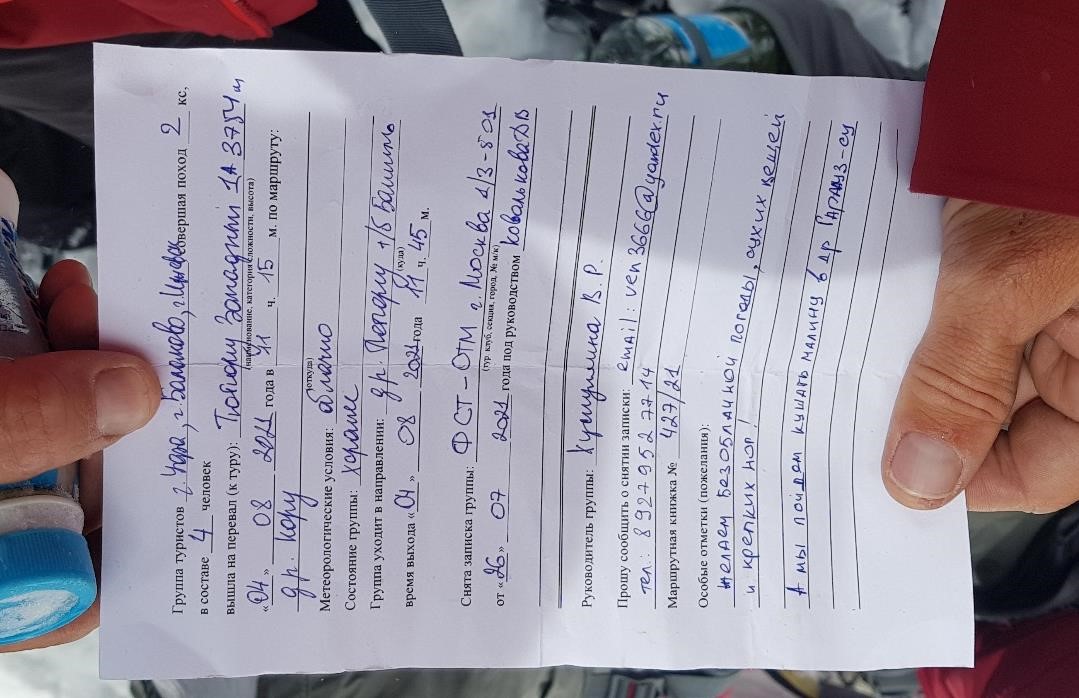 Группа туристов г. Уфа, г. Балаково, г. совершая поход 2 кс,
в составе 4 человек
вышла на перевал (к туру): Тютюсу Западный 1А 3754 м
(наименование, категория сложности, высота)
«04» 08 2021 года в 11 ч. 15 м. по маршруту:
др. Кору
(откуда)
Метеорологические условия: облачно
Состояние группы: хорошее
Группа уходит в направлении: др. т/б Башиль
(куда)
время выхода «04» 08 2021 года 11 ч. 45 м.
Снята записка группы: ФСТ-ОТМ г. Москва 1/3-501
(тур. клуб, секция, город, № м/к)
от «26» 07 2021 года под руководством Ковалькова ДВ
Руководитель группы: В. Р.
Прошу сообщить о снятии записки: email: ven3666@yandex.ru
тел: 8 927 952 77 14
Маршрутная книжка № 427/21
Особые отметки (пожелания):
желаем безоблачной погоды, сухих вещей
и крепких ног!
А мы пойдем кушать малину в др